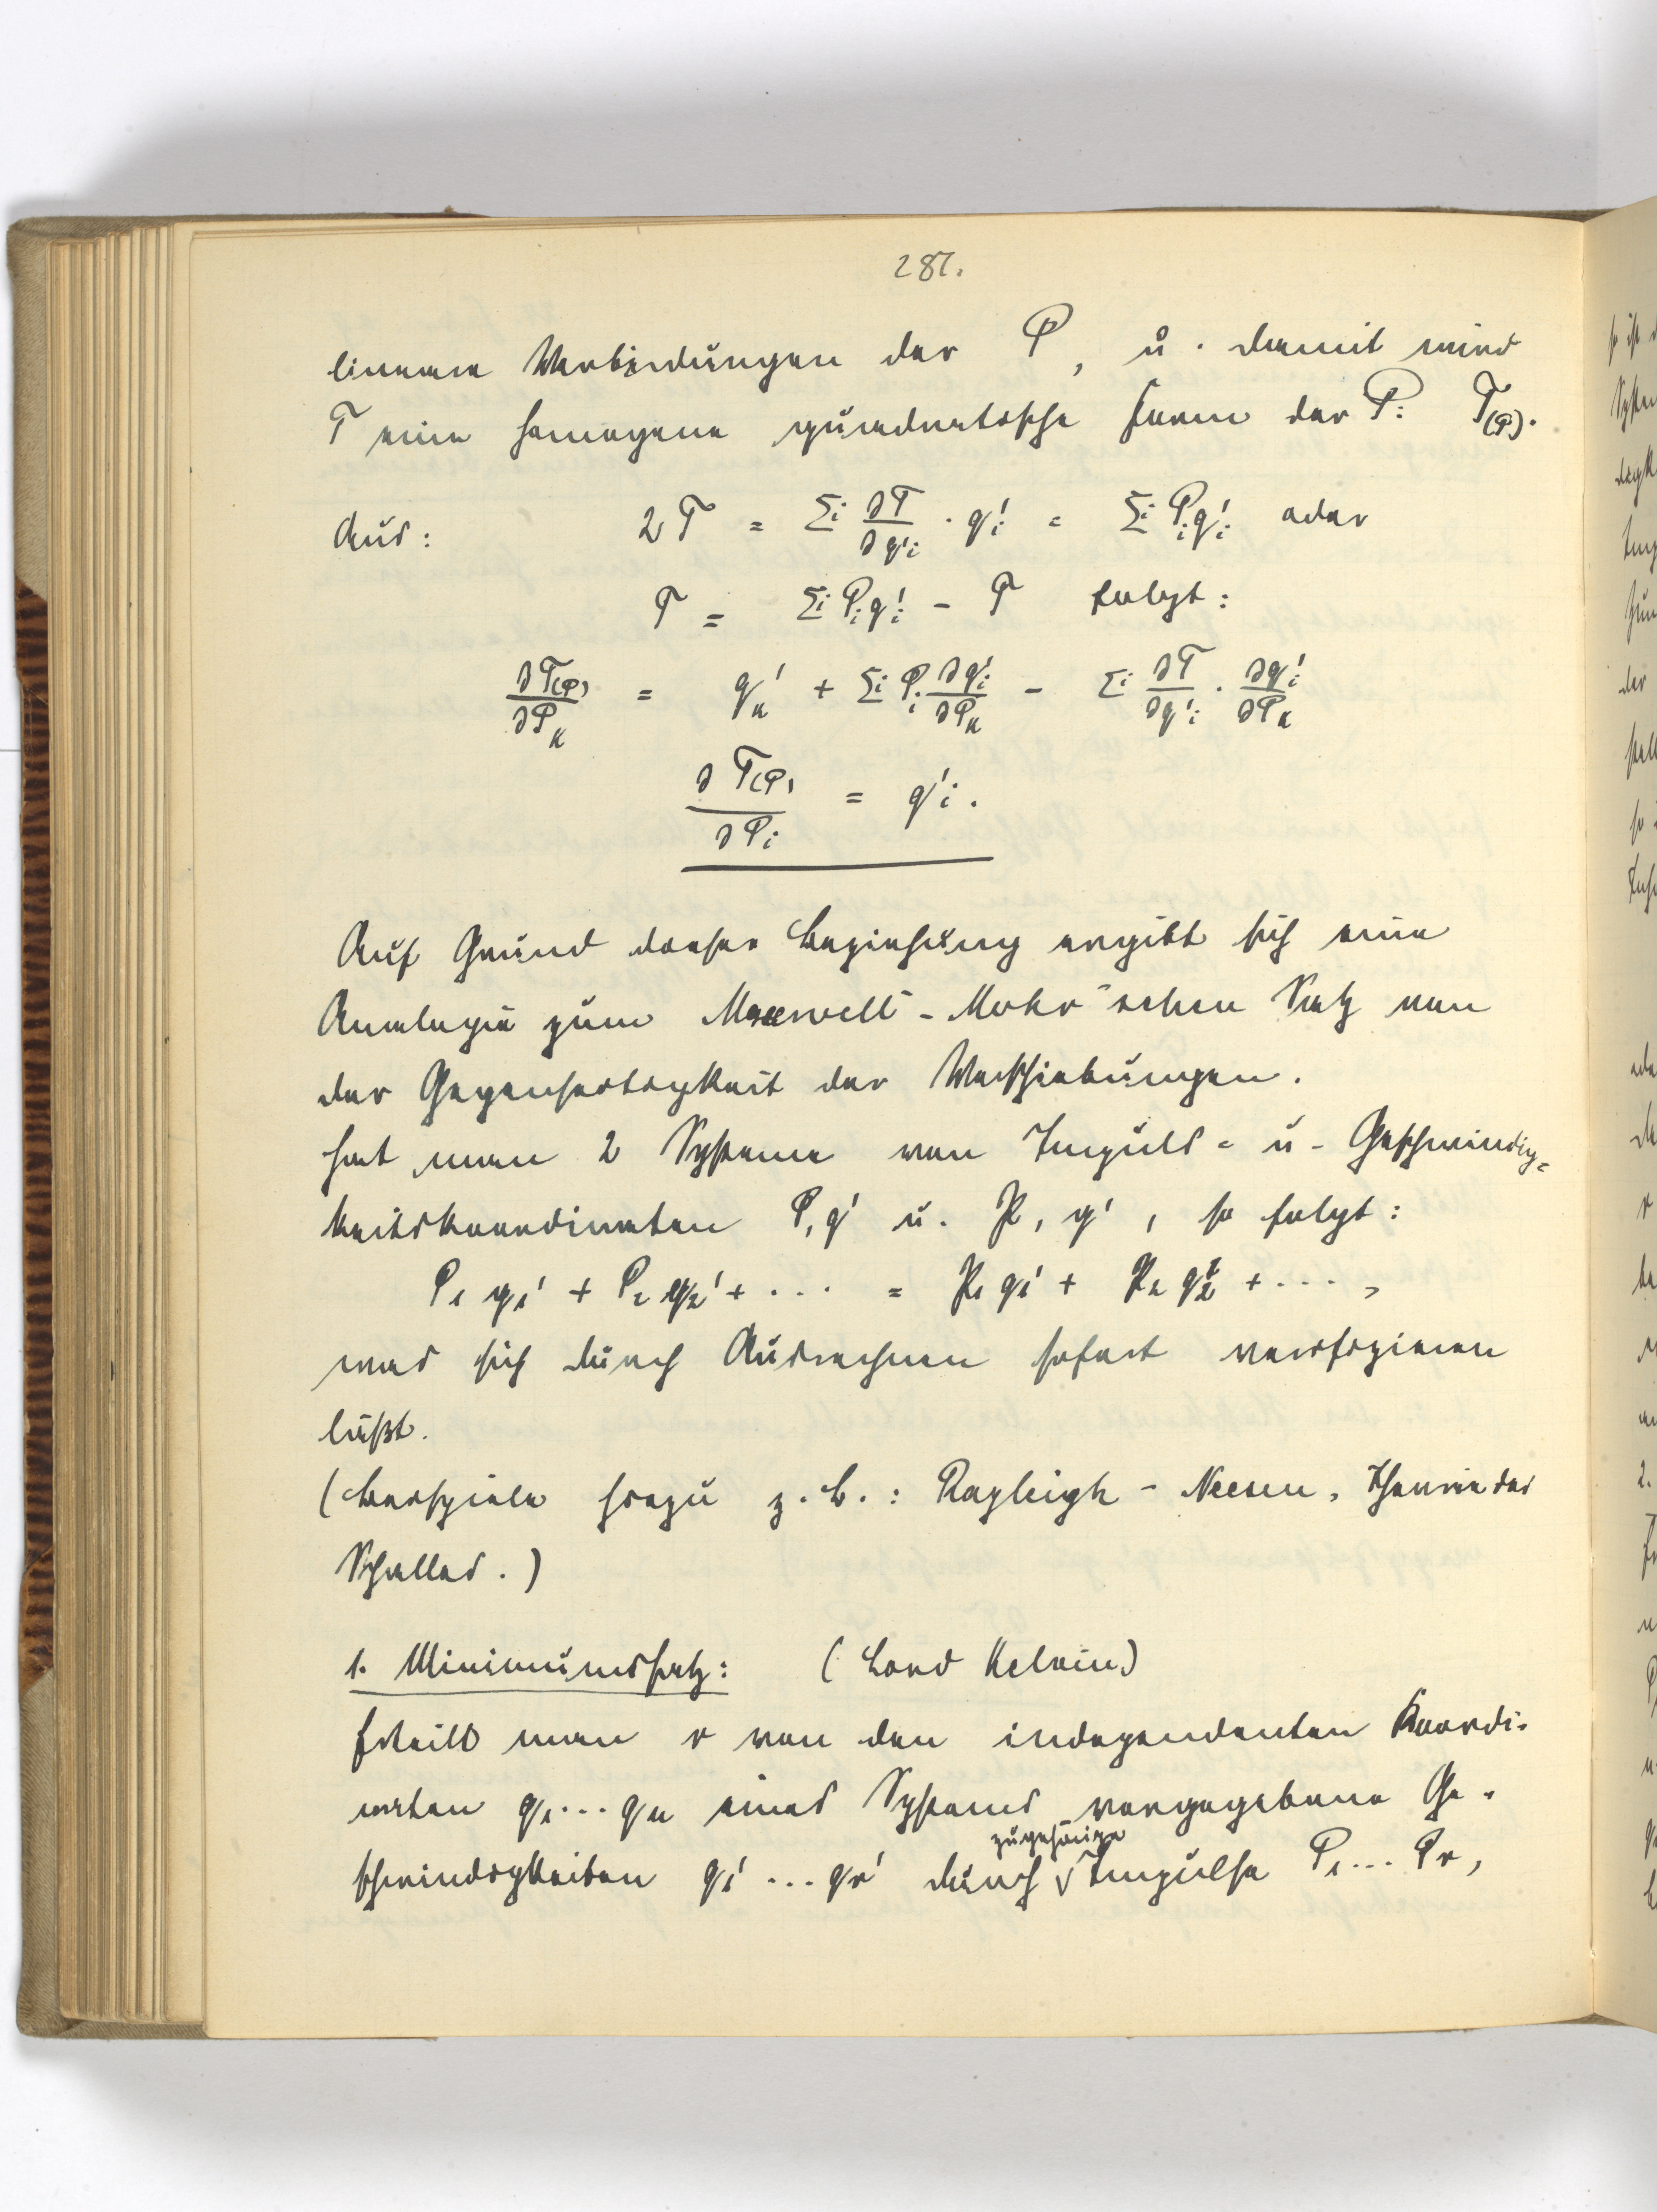 287.
lineare Verbindungen der P, u. damit wird
T eine homogene quadratische Form der P: T(P).
Aus: 2T = Σi ∂T/∂q'i · q'i = Σi Pi q'i oder
T = Σi Pi q'i - T folgt:
∂T(P)/∂Pk = q'k + Σi Pi ∂q'i/∂Pk - Σi ∂T/∂q'i · ∂q'i/∂Pk
∂T(P)/∂Pi = q'i.
Auf Grund dieser Beziehung ergibt sich eine
Analogie zum Maxwell-Mohr'schen Satz von
der Gegenseitigkeit der Verschiebungen.
Hat man 2 Systeme von Impuls- u- Geschwindig-
keitskoordinaten P, q' u. p, q', so folgt:
P1 q1' + P2 q2' + ... = p1 q1' + p2 q2' + ... ,
was sich durch Ausrechnen sofort verifizieren
läßt.
(Beispiele hiezu z.B.: Rayleigh - Neesen, Theorie des
Schalles.)
1. Minimumssatz: (Lord Kelvin)
Erteilt man r von den independenten Koordi-
naten q1...qn eines Systems vorgegebene Ge-
schwindigkeiten q1'...qr' durch zugehörige Impulse P1...Pr,